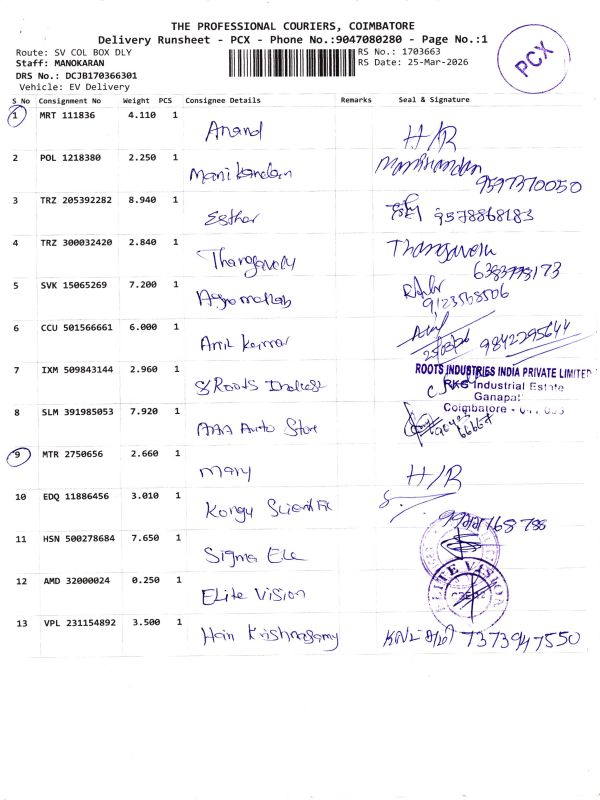 THE PROFESSIONAL COURIERS, COIMBATORE
Delivery Runsheet - PCX - Phone No.:9047080280 - Page No.:1
PCX
Route: SV COL BOX DLY
RS No.: 1703663
Staff: MANOKARAN
RS Date: 25-Mar-2026
DRS No.: DCJB170366301
Vehicle: EV Delivery
S No Consignment No Weight PCS Consignee Details Remarks Seal & Signature
1 MRT 111836 4.110 1 Anand H/R
2 POL 1218380 2.250 1 Manikandan Manikandan
9597370050
3 TRZ 205392282 8.940 1 Esther 9578868183
4 TRZ 300032420 2.840 1 Thangavelu Thangavelu
6383773173
5 SVK 15065269 7.200 1
9123568506
6 CCU 501566661 6.000 1 Anil Kumar
9842295644
7 IXM 509843144 2.960 1 Roots
ROOTS INDUSTRIES INDIA PRIVATE LIMITED
RKS Industrial Estate
Ganapat
Coimbatore -
8 SLM 391985053 7.920 1 AAA Auto Store
9 MTR 2750656 2.660 1 Mary H/R
10 EDQ 11886456 3.010 1 Kongu
11 HSN 500278684 7.650 1 Sigma Ele
12 AMD 32000024 0.250 1 Elite Vision
ELITE VISION
13 VPL 231154892 3.500 1 Hari Krishnasamy 7373947550